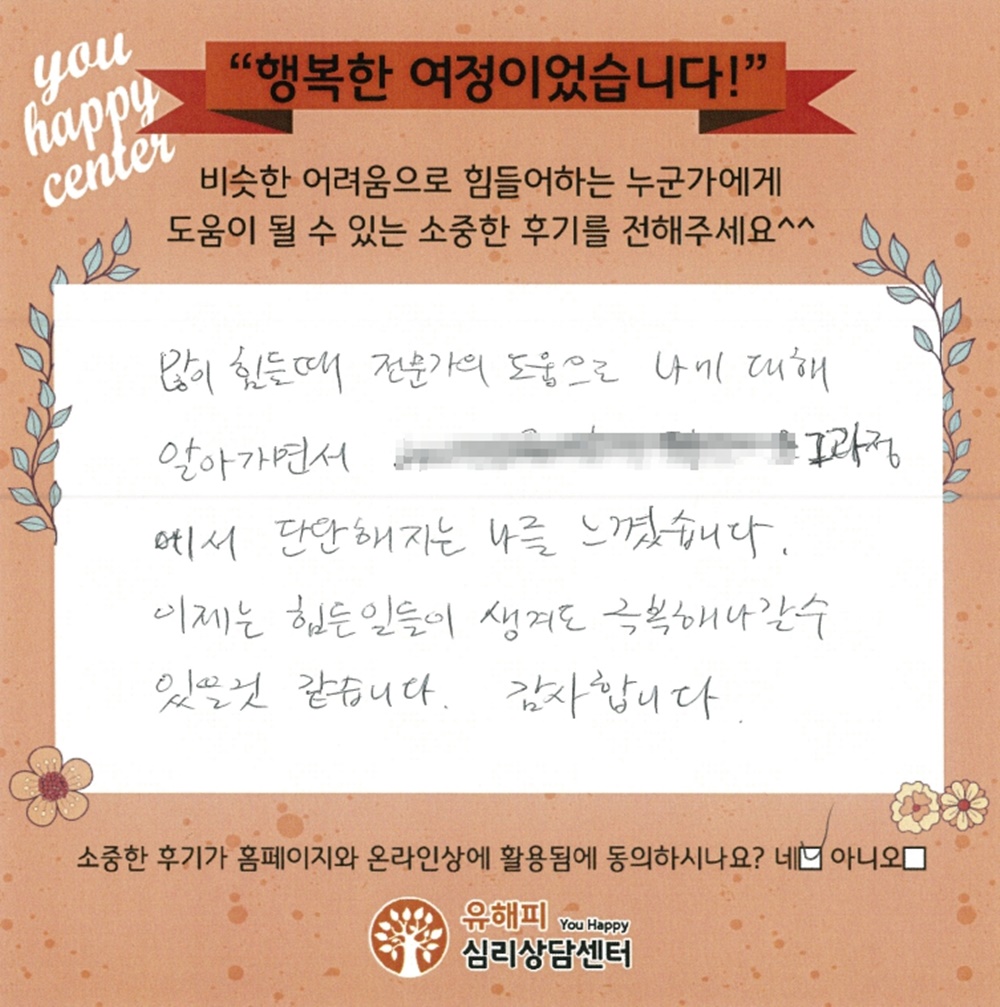 you
happy
center
“행복한 여정이었습니다!”
비슷한 어려움으로 힘들어하는 누군가에게
도움이 될 수 있는 소중한 후기를 전해주세요^^
많이 힘들때 전문가의 도움으로 나에 대해
알아가면서 과정
에서 단단해지는 나를 느꼈습니다.
이제는 힘든일들이 생겨도 극복해나갈수
있을것 같습니다. 감사합니다.
소중한 후기가 홈페이지와 온라인상에 활용됨에 동의하시나요? 네 아니오
유해피 You Happy
심리상담센터